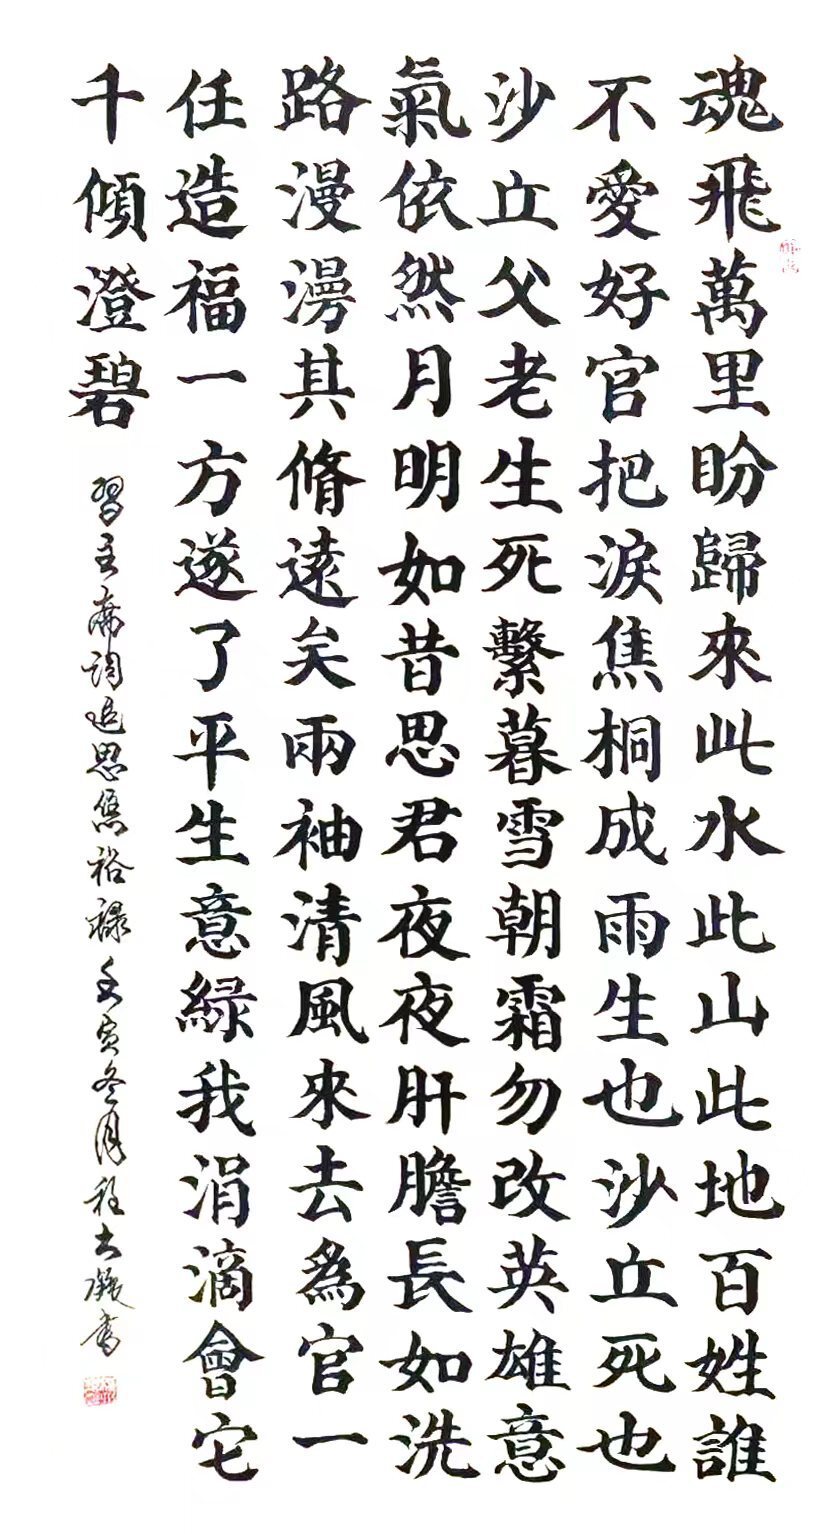 魂飛萬里盼歸來此水此山此地百姓誰
不愛好官把淚焦桐成雨生也沙丘死也
沙丘父老生死繫暮雪朝霜勿改英雄意
氣依然月明如昔思君夜夜肝膽長如洗
路漫漫其脩遠矣兩袖清風來去為官一
任造福一方遂了平生意綠我涓滴會它
千傾澄碧
習主席詞追思焦裕祿壬寅冬月程士凝書